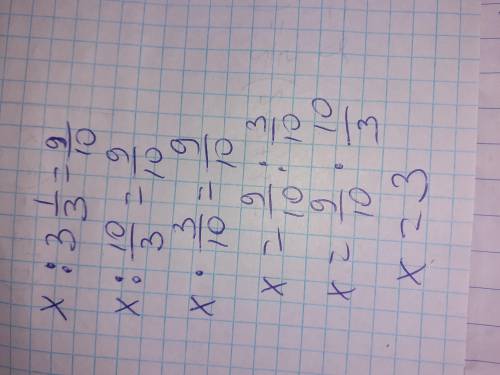 x : 3 1/3 = 9/10
x : 10/3 = 9/10
x · 3/10 = 9/10
x = 9/10 · 3/10
x = 9/10 · 10/3
x = 3